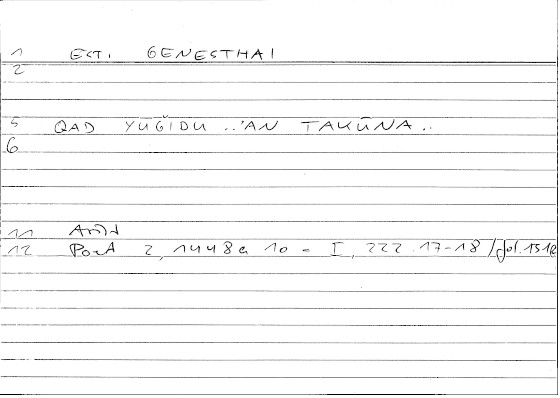 1 EST. GENESTHAI
2
5 QAD YŪǦIDU ..'AN TAKŪNA..
6
11
12 PoeA 2, 1448a 10 = I, 222.17-18 / fol.